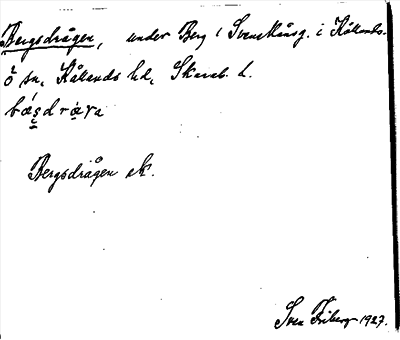 Bergsdrågen, under Berg i Svenskängsg. i Kållands-
ö sn, Kållands hd, Skarab. l.
Bergsdrågen ek.
Sven Friberg 1927.